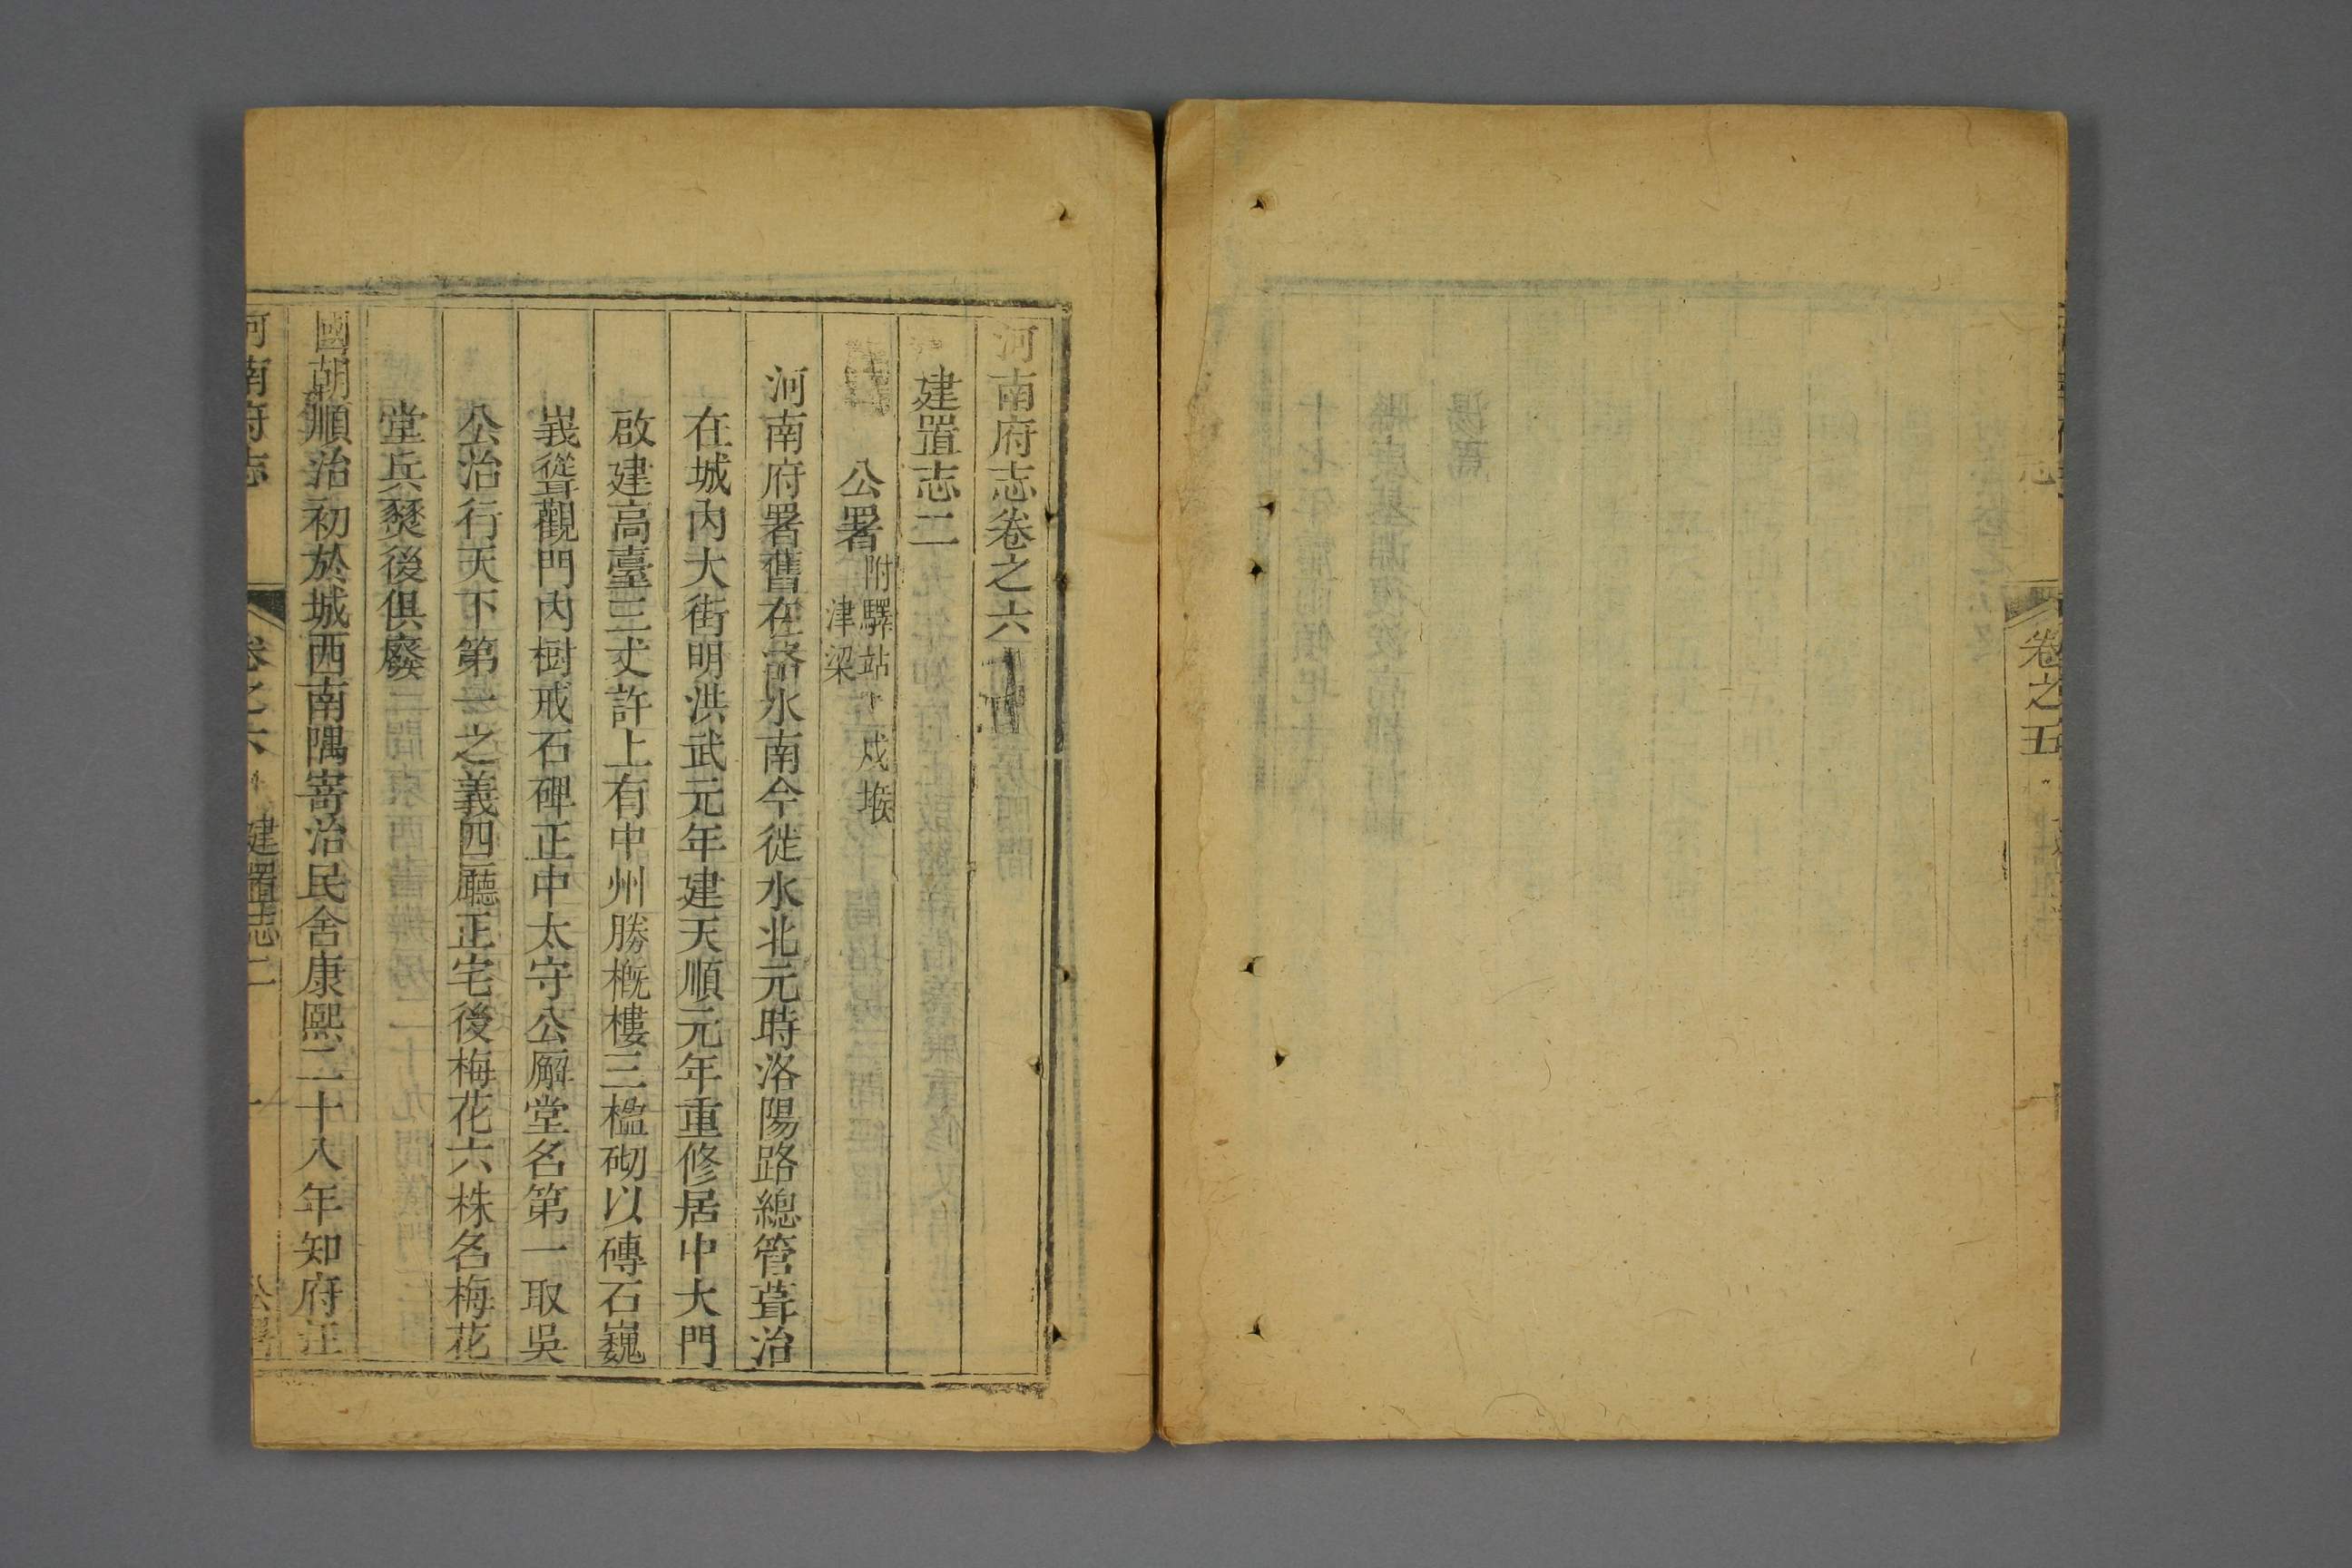 卷之五
河南府志卷之六
建置志二
公署 附驛站 戍堠 津梁
河南府署舊在洛水南今徙水北元時洛陽路總管葺治
在城內大街明洪武元年建天順元年重修居中大門
啟建高臺三丈許上有中州勝槪樓三楹砌以磚石巍
峩聳觀門內樹戒石碑正中太守公廨堂名第一取吳
公治行天下第一之義四廳正宅後梅花六株名梅花
堂兵燹後俱廢
國朝順治初於城西南隅寄治民舍康熙二十八年知府汪
河南府志 卷之六 建置志二 公署 一